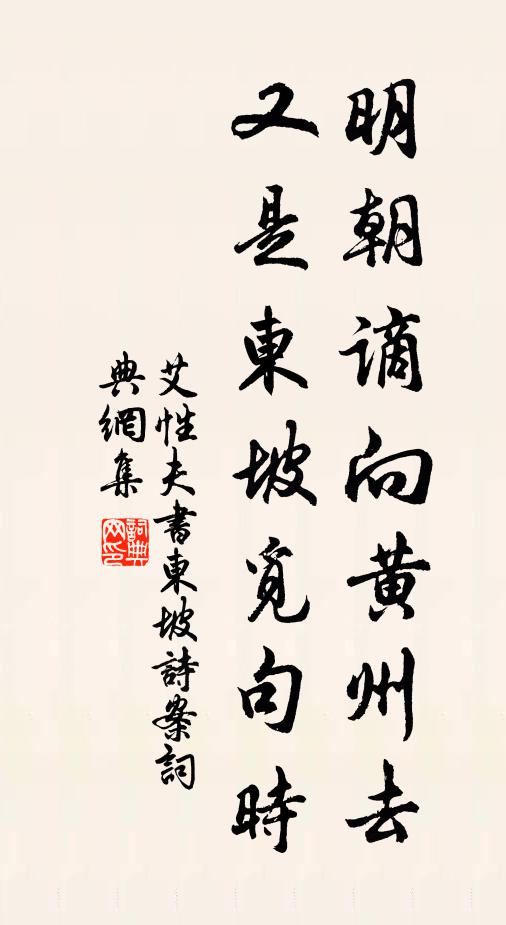 明朝謫向黃州去
又是東坡覓句時
艾性夫書東坡詩案詞
典網集
詞典
网印